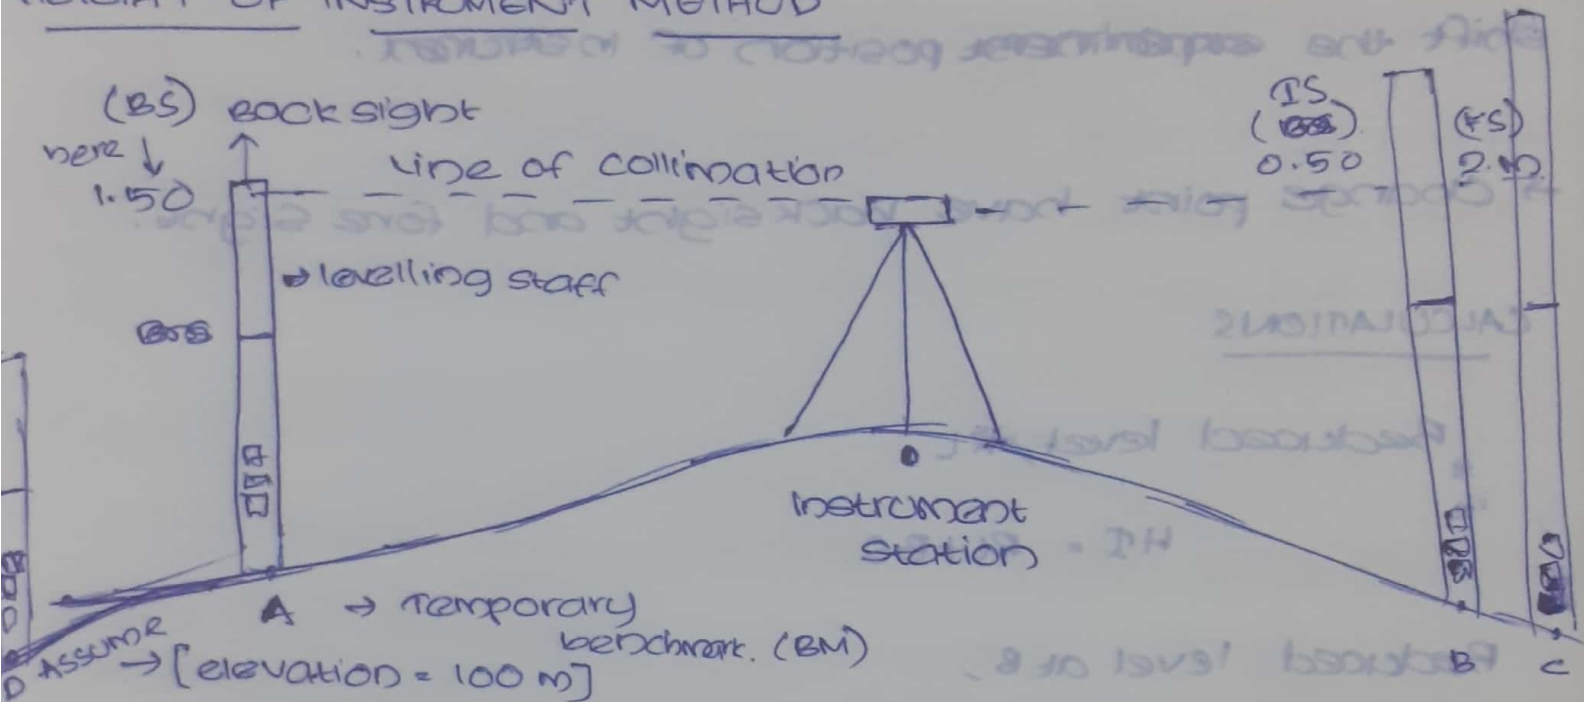 OF INSTRUMENT METHOD
(BS) Back sight
here ↓
1.50
Line of collimation
IS
0.50
(FS)
→ levelling staff
Instrument
station
A → Temporary
benchmark. (BM)
Assume
→ [elevation = 100 m]
D
B
C